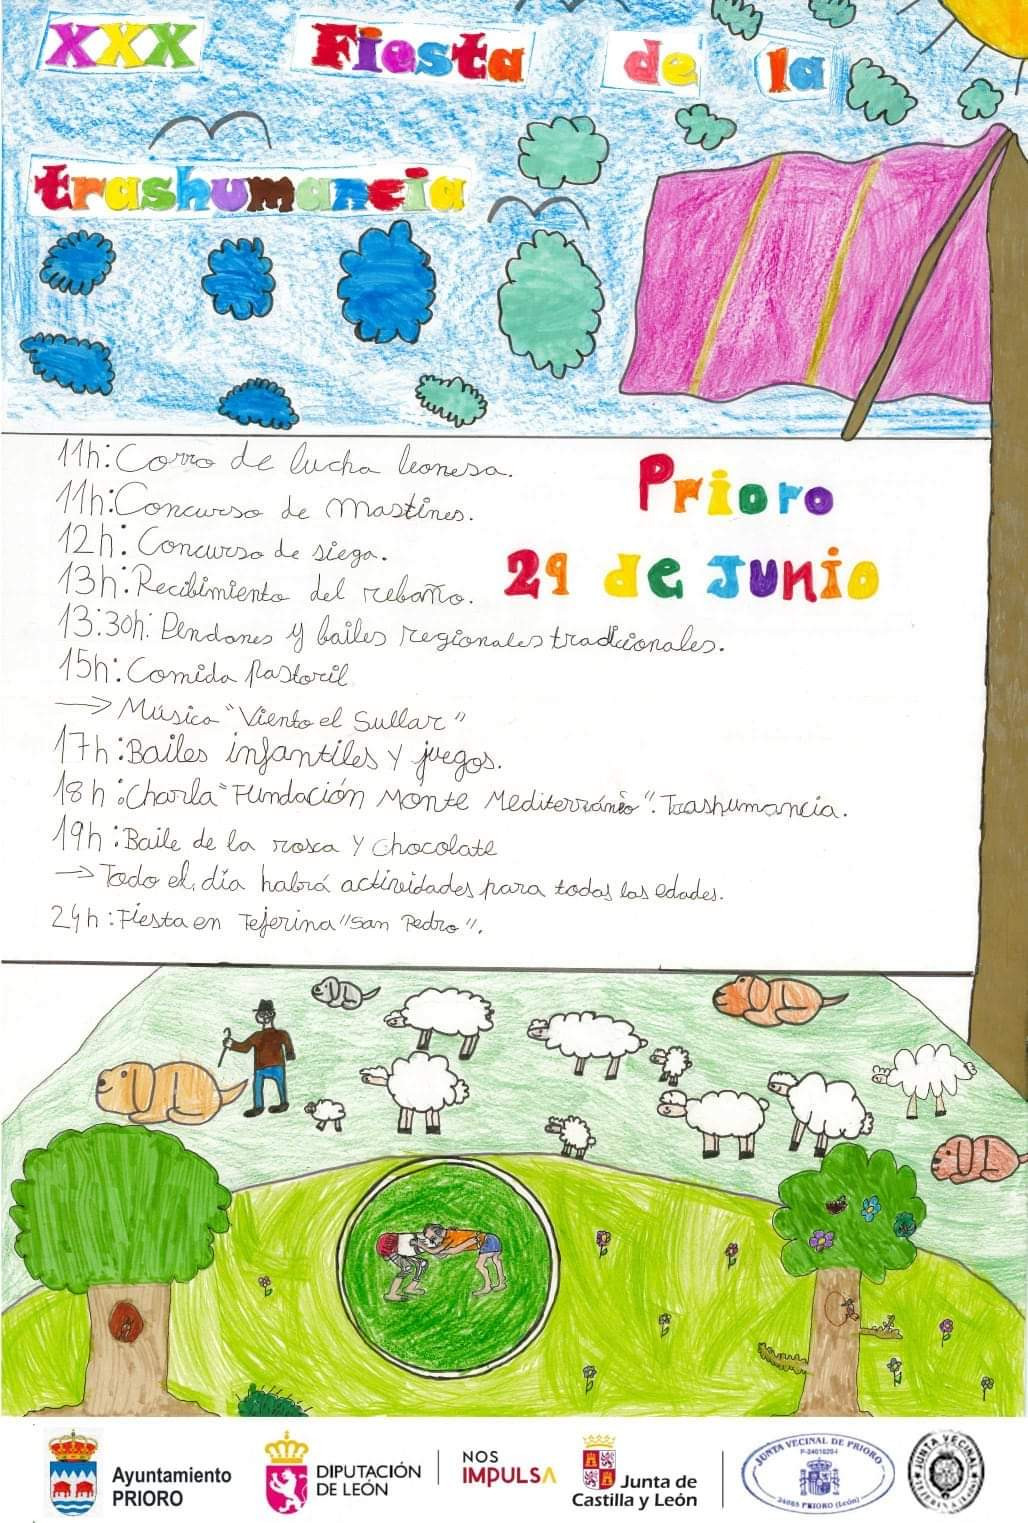 XXX Fiesta de la
trashumancia
11h: Corro de lucha leonesa.
11h: Concurso de Mastines.
12h: Concurso de siega.
13h: Recibimiento del rebaño.
13:30h: Pendones y bailes regionales tradicionales.
15h: Comida Pastoril
→ Música "Viento el Sullar"
17h: Bailes infantiles y juegos.
18h: Charla "Fundación Monte Mediterráneo". Trashumancia.
19h: Baile de la rosca y chocolate
→ Todo el día habrá actividades para todas las edades.
24h: Fiesta en Tejerina "San Pedro".
Prioro
29 de Junio
Ayuntamiento
PRIORO
DIPUTACIÓN
DE LEÓN
NOS
IMPULSA
Junta de
Castilla y León
JUNTA VECINAL DE PRIORO
P-2401020-I
24885 PRIORO (León)
JUNTA VECINAL
TEJERINA (León)